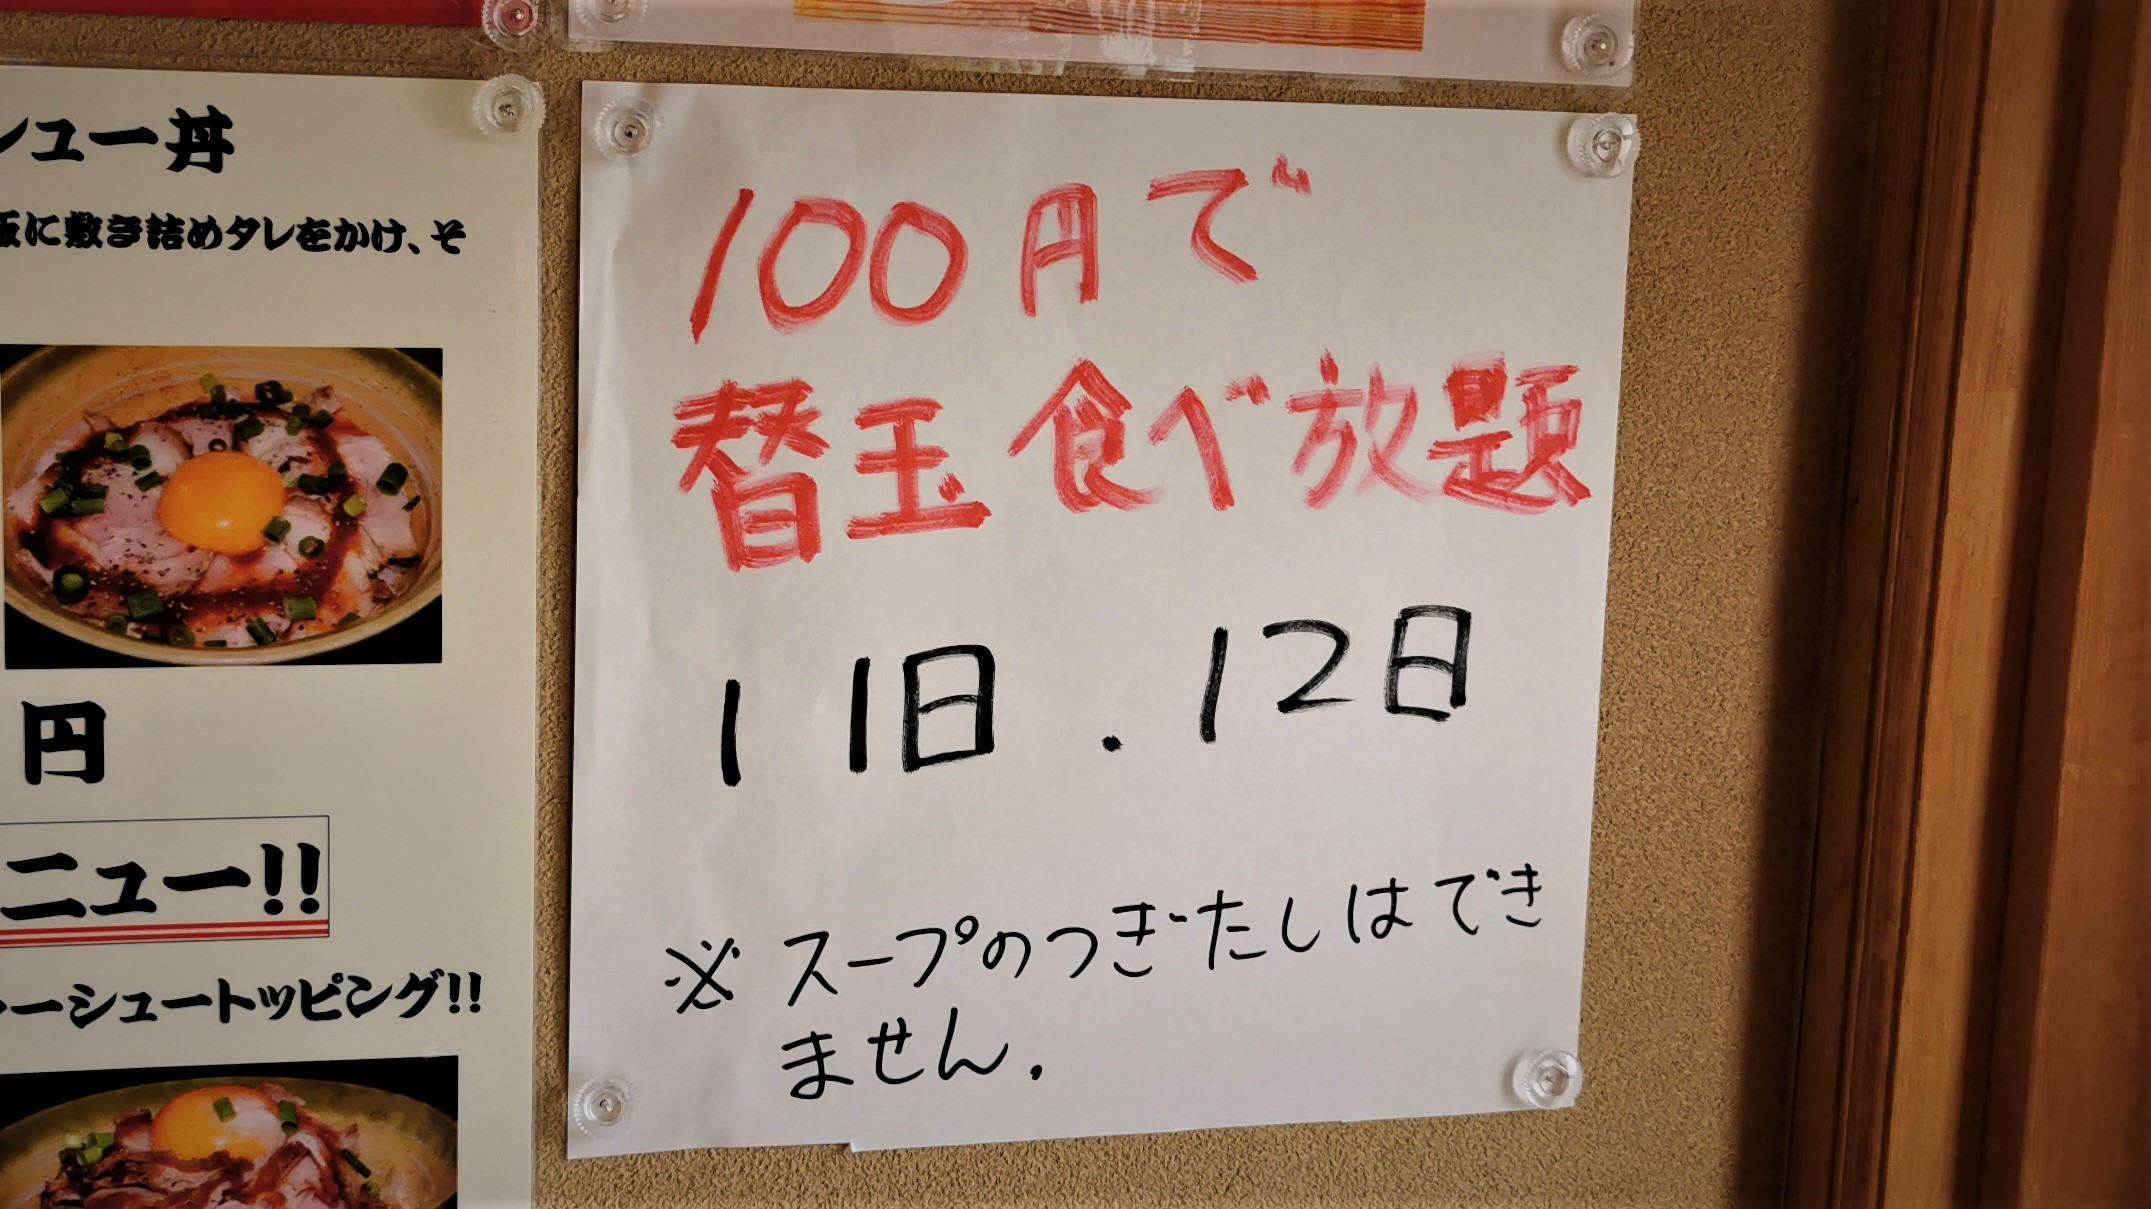 シュー丼
飯に敷き詰めタレをかけ、そ
円
ニュー!!
ーシュートッピング!!
100円で
替玉食べ放題
11日.12日
※スープのつぎたしはでき
ません.